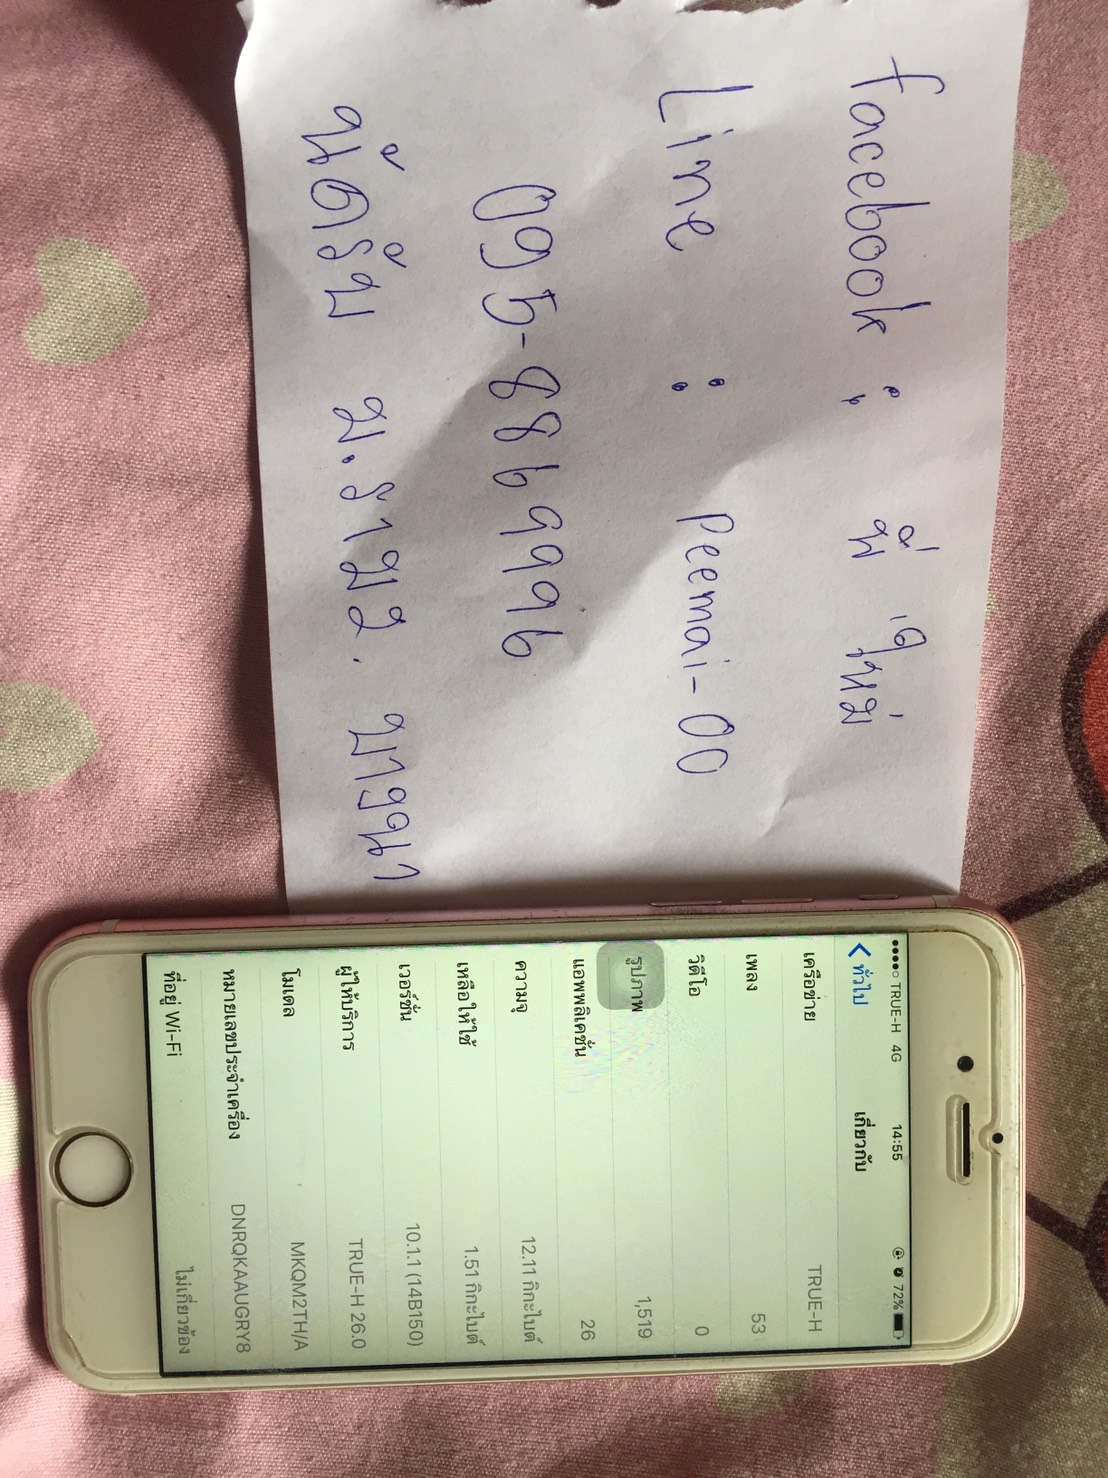 facebook : พี่ ใหม่
Line : Peemai-00
095-8869996
นัดรับ ม.ราม2. บางนา
TRUE-H 4G 14:55 72%
ทั่วไป เกี่ยวกับ
เครือข่าย TRUE-H
เพลง 53
วิดีโอ 0
รูปภาพ 1,519
แอพพลิเคชั่น 26
ความจุ 12.11 กิกะไบต์
เหลือให้ใช้ 1.51 กิกะไบต์
เวอร์ชั่น 10.1.1 (14B150)
ผู้ให้บริการ TRUE-H 26.0
โมเดล MKQM2TH/A
หมายเลขประจำเครื่อง DNRQKAAUGRY8
ที่อยู่ Wi-Fi ไม่เกี่ยวข้อง